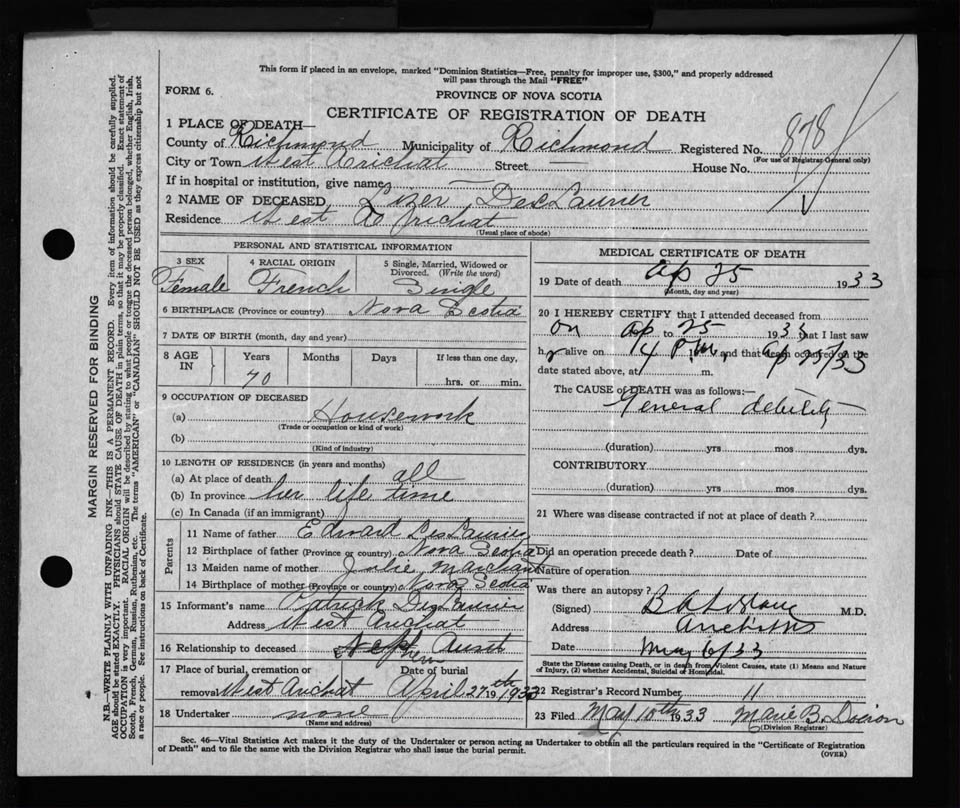 This form if placed in an envelope, marked "Dominion Statistics—Free, penalty for improper use, $300," and properly addressed
will pass through the Mail "FREE"
FORM 6.
PROVINCE OF NOVA SCOTIA
CERTIFICATE OF REGISTRATION OF DEATH
878
1 PLACE OF DEATH—
County of Richmond Municipality of Richmond Registered No.
(For use of Registrar General only)
City or Town West Arichat Street House No.
If in hospital or institution, give name
2 NAME OF DECEASED DesLaurier
Residence West Arichat
(Usual place of abode)
PERSONAL AND STATISTICAL INFORMATION
3 SEX 4 RACIAL ORIGIN 5 Single, Married, Widowed or Divorced. (Write the word)
Female French Single
6 BIRTHPLACE (Province or country) Nova Scotia
7 DATE OF BIRTH (month, day and year)
8 AGE IN Years Months Days If less than one day,
70 hrs. or min.
9 OCCUPATION OF DECEASED
(a) Housework
(Trade or occupation or kind of work)
(b)
(Kind of industry)
10 LENGTH OF RESIDENCE (in years and months)
(a) At place of death all
(b) In province her life time
(c) In Canada (if an immigrant)
Parents
11 Name of father Edward DesLaurier
12 Birthplace of father (Province or country) Nova Scotia
13 Maiden name of mother Julie Marchand
14 Birthplace of mother (Province or country) Nova Scotia
15 Informant's name Patrick DesLaurier
Address West Arichat
16 Relationship to deceased Aunt
17 Place of burial, cremation or removal West Arichat Date of burial April 27th 1933
18 Undertaker none
(Name and address)
MEDICAL CERTIFICATE OF DEATH
19 Date of death Ap 25 1933
(Month, day and year)
20 I HEREBY CERTIFY that I attended deceased from
on Ap to 25 1933 that I last saw
h r alive on and that death occurred on the
date stated above, at 4 P.M. m. Ap 25/33
The CAUSE of DEATH was as follows:—
General debility
(duration) yrs mos dys.
CONTRIBUTORY
(duration) yrs. mos. dys.
21 Where was disease contracted if not at place of death?
Did an operation precede death? Date of
Nature of operation
Was there an autopsy?
(Signed) M.D.
Address
Date May 6/33
State the Disease causing Death, or in death from Violent Causes, state (1) Means and Nature
of Injury, (2) whether Accidental, Suicidal or Homicidal.
22 Registrar's Record Number 11
23 Filed May 10th 1933 Marie B.
(Division Registrar)
Sec. 46—Vital Statistics Act makes it the duty of Undertaker or person acting as Undertaker to obtain all the particulars required in the "Certificate of Registration
of Death" and to file the same with the Division Registrar who shall issue the burial permit.
(OVER)
MARGIN RESERVED FOR BINDING
N.B.—WRITE PLAINLY WITH UNFADING INK—THIS IS A PERMANENT RECORD. Every item of information should be carefully supplied.
AGE should be stated EXACTLY. PHYSICIANS should STATE CAUSE OF DEATH in plain terms, so that it may be properly classified. Exact statement of
OCCUPATION is very important. RACIAL ORIGIN will be described by stating to what people or tongue the deceased person belonged, whether English, Irish,
Scotch, French, German, Russian, Ruthenian, etc. The terms "AMERICAN" or "CANADIAN" SHOULD NOT BE USED as they express citizenship but not
a race or people. See instructions on back of Certificate.